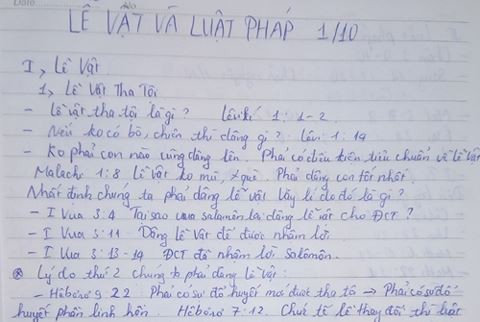 LỄ VẬT VÀ LUẬT PHÁP 1/10
I, Lễ Vật
1, Lễ Vật Tha Tội
- Lễ vật tha tội là gì? Lêviký 1:1-2
- Nếu ko có bò, chiên thì dâng gì? Lêvi 1:14
- Ko phải con nào cũng dâng lên. Phải có điều kiện tiêu chuẩn về lễ vật
Malachi 1:8 Lễ vật ko mù, què. Phải dâng con tốt nhất.
Nhất định chúng ta phải dâng lễ vật vậy lí do đó là gì?
- I Vua 3:4 Tại sao vua salômôn lại dâng lễ vật cho ĐCT?
- I Vua 3:11 Dâng Lễ Vật để được nhậm lời
- I Vua 3:13-14 ĐCT đã nhậm lời Salômôn.
* Lý do thứ 2 chúng ta phải dâng lễ vật:
- Hêbơrơ 9 22 Phải có sự đổ huyết mới được tha tội → Phải có sự đổ
huyết phần linh hồn. Hêbơrơ 7:12. Chức tế lễ thay đổi thì luật